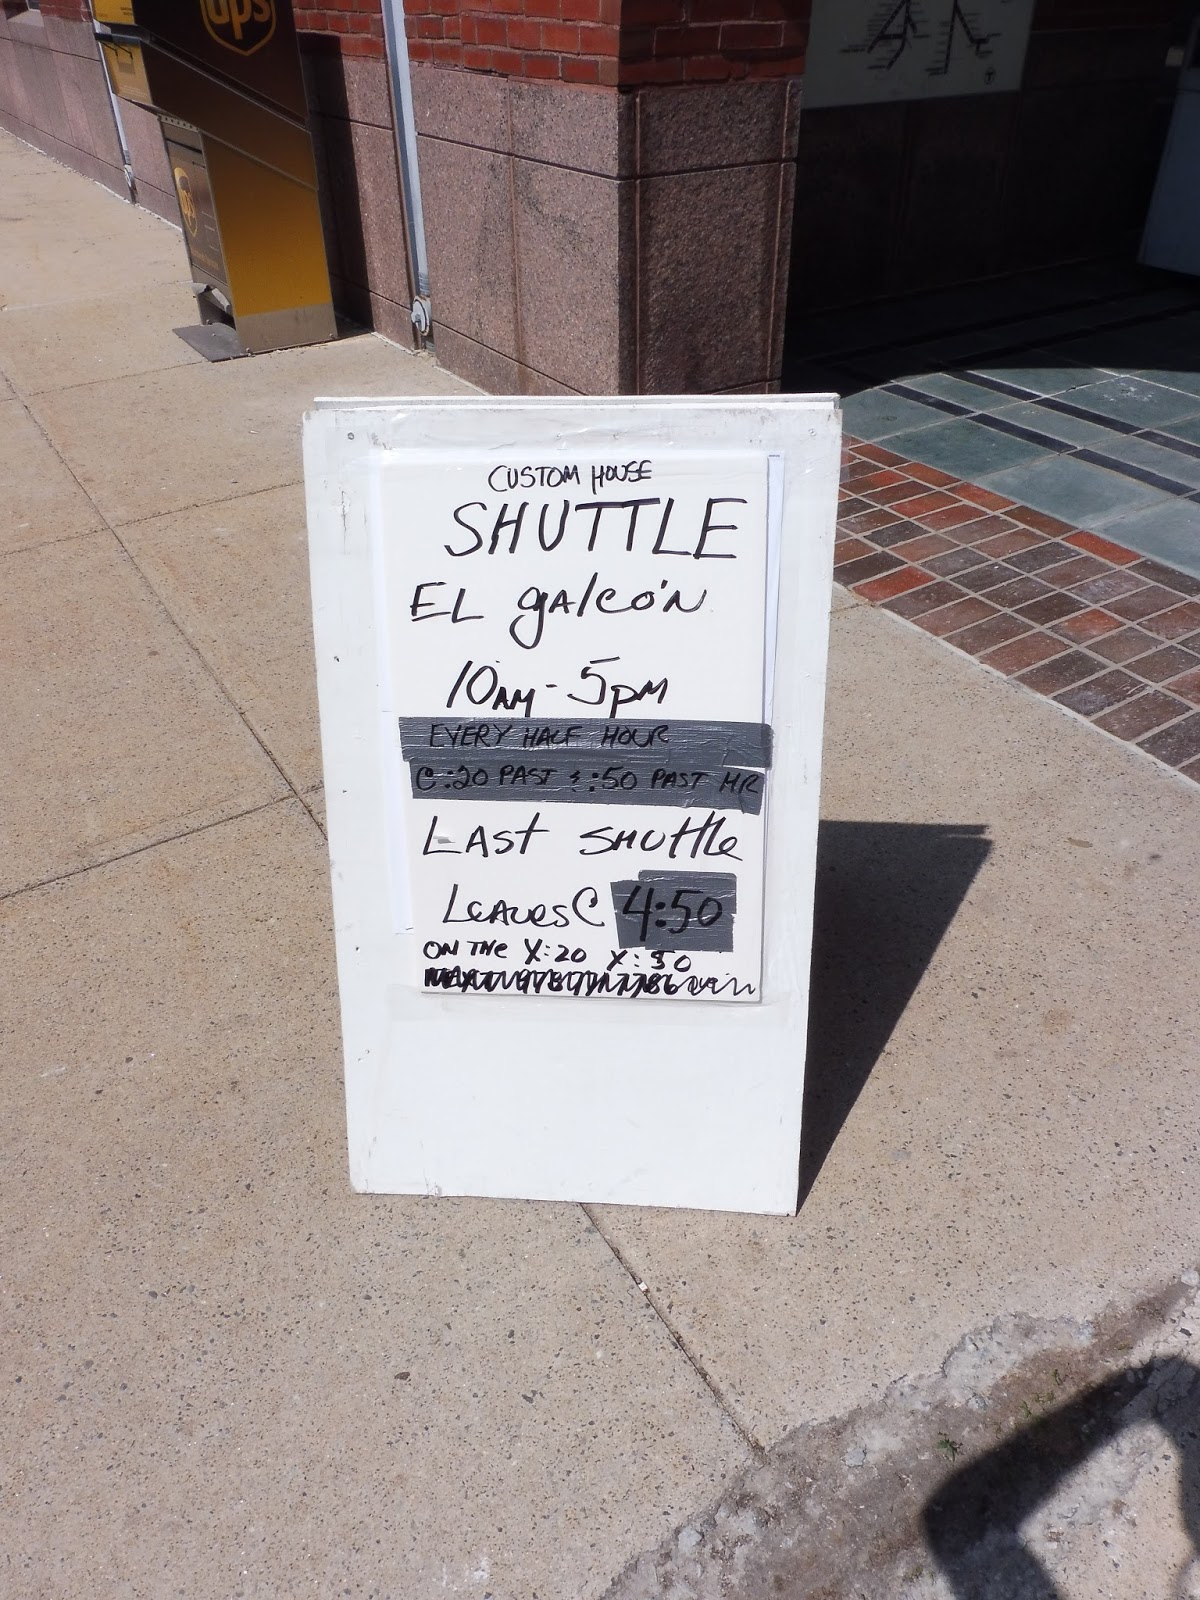 ups
ups
CUSTOM HOUSE
SHUTTLE
EL galeón
10AM - 5PM
EVERY HALF HOUR
@ :20 PAST & :50 PAST HR
LAST SHUTTLE
LEAVES @ 4:50
ON THE X:20 X:50